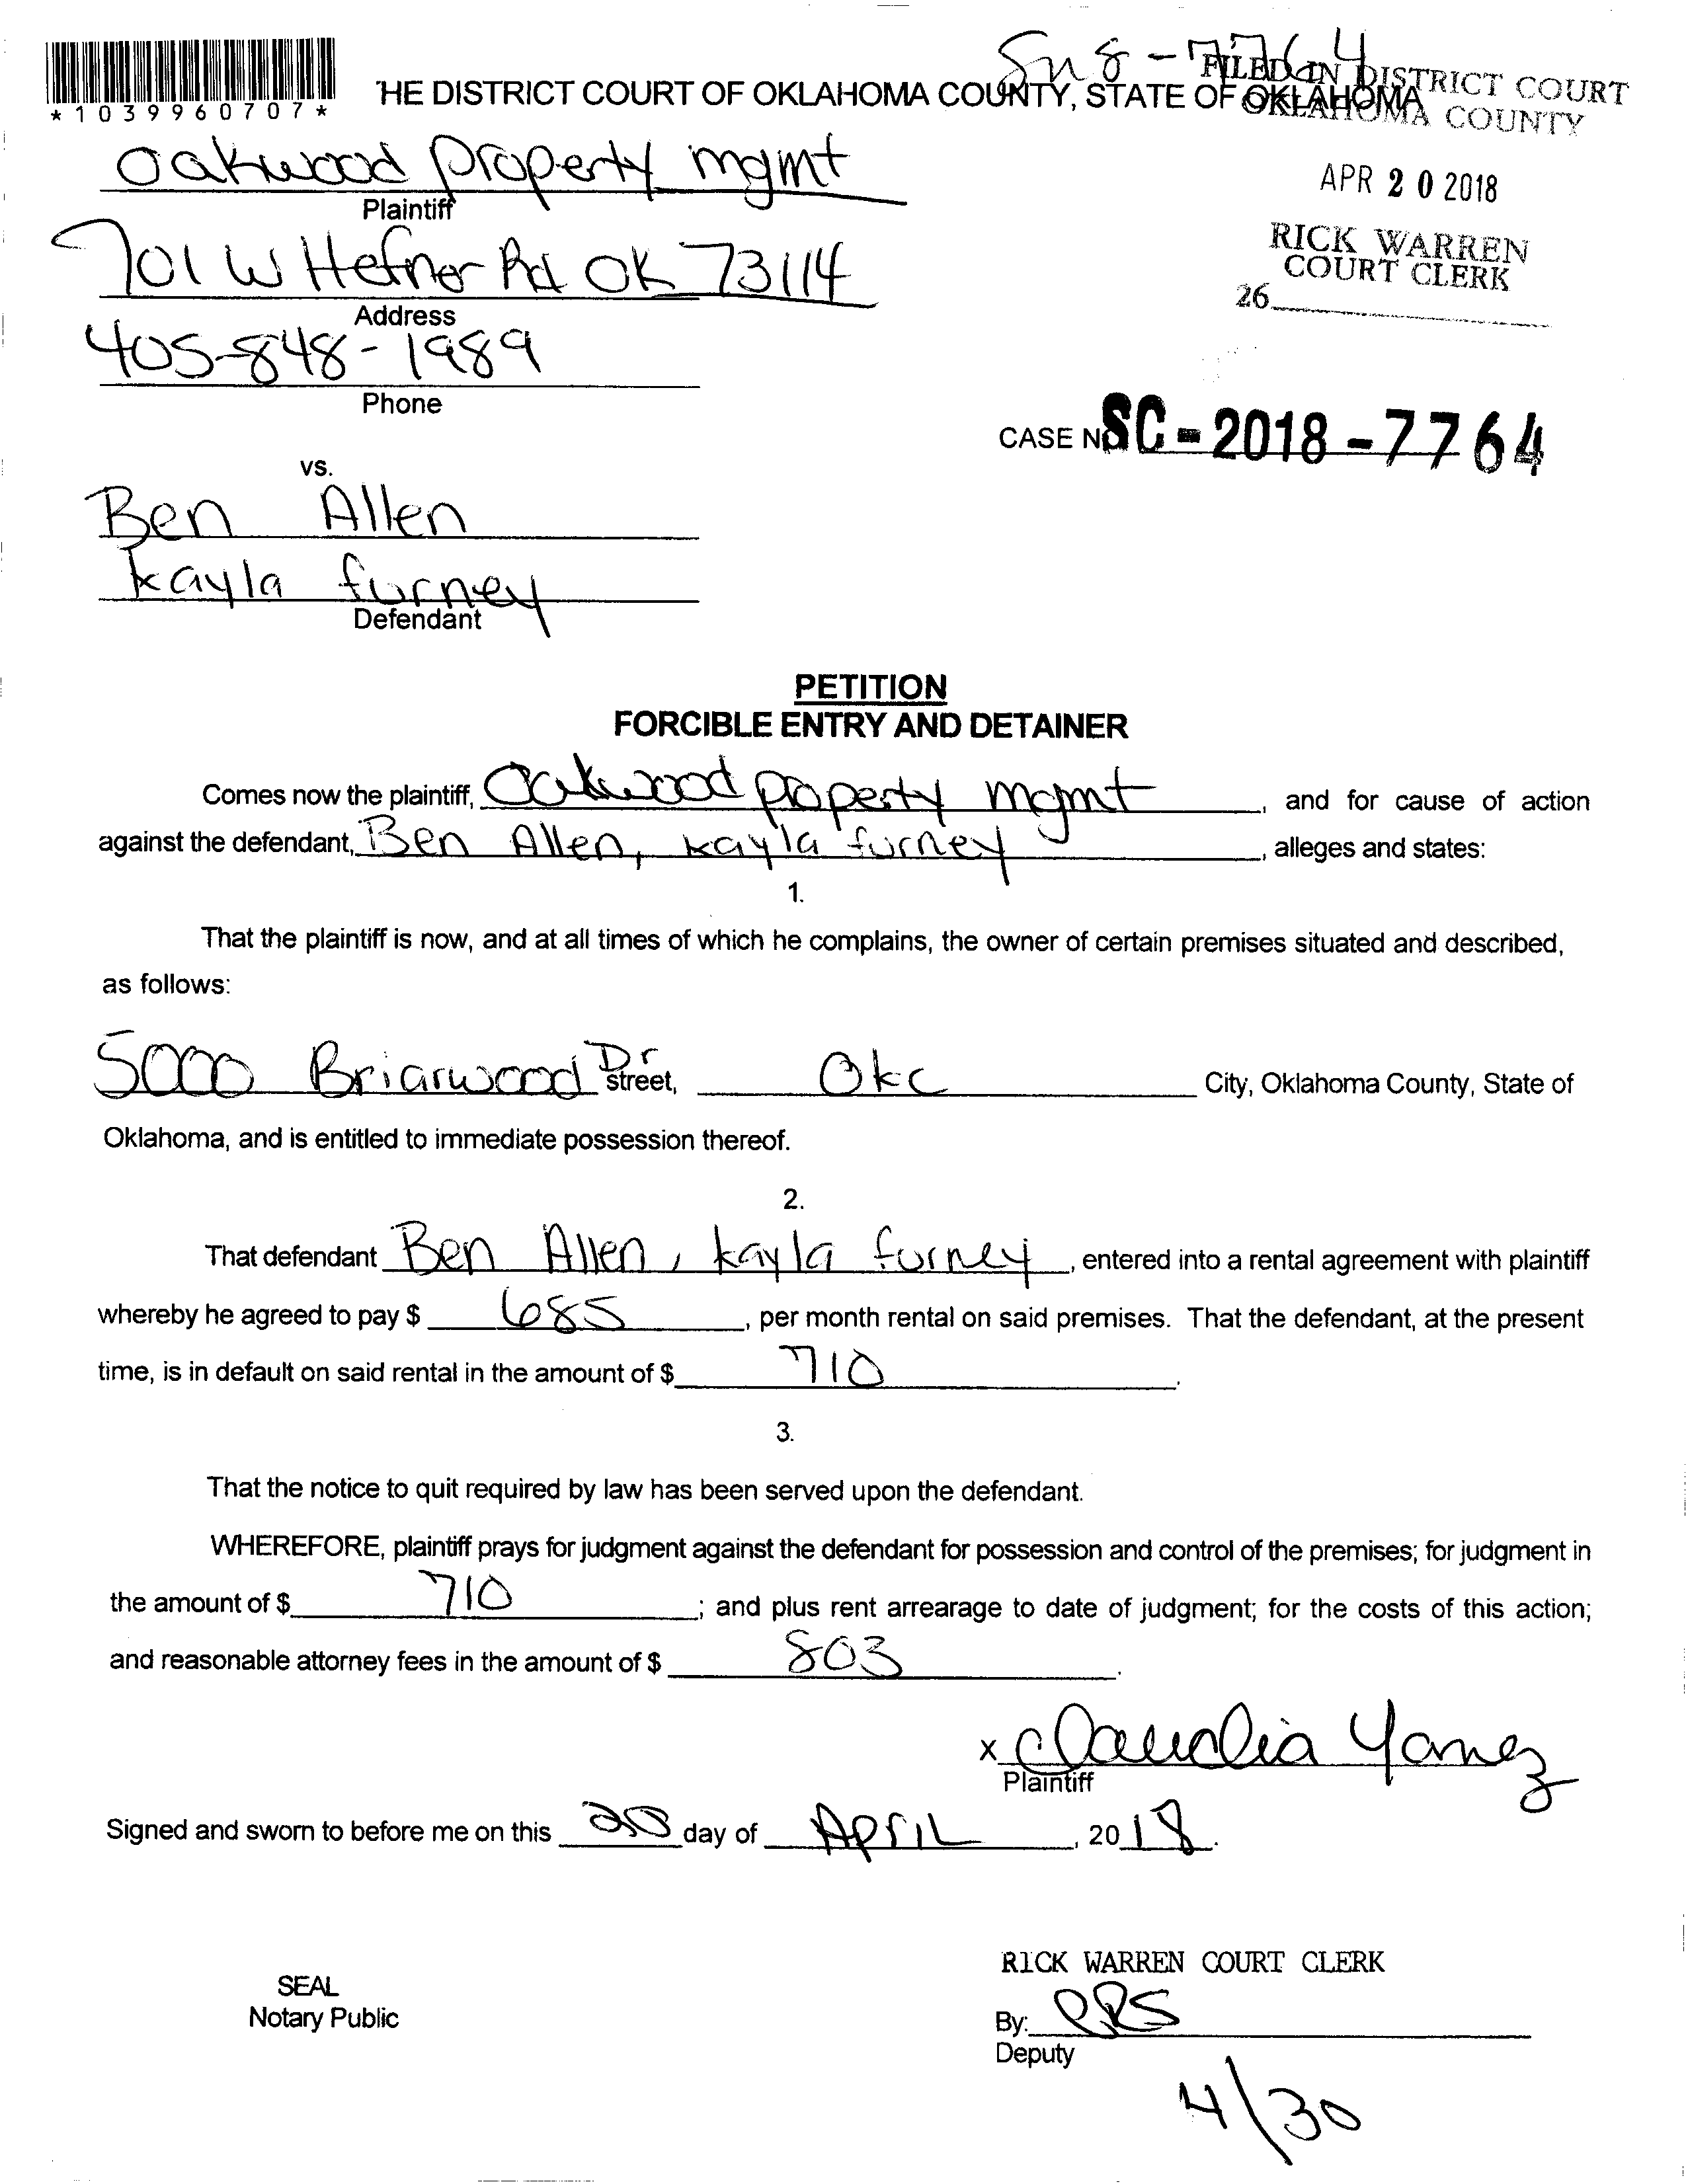 SN8-7764
*1039960707*
HE DISTRICT COURT OF OKLAHOMA COUNTY, STATE OF OKLAHOMA
FILED IN DISTRICT COURT
OKLAHOMA COUNTY
APR 20 2018
RICK WARREN
COURT CLERK
26
Oakwood property mgmt
Plaintiff
701 W Hefner Rd OK 73114
Address
405-848-1989
Phone
CASE NO SC-2018-7764
vs.
Ben Allen
kayla furney
Defendant
PETITION
FORCIBLE ENTRY AND DETAINER
Comes now the plaintiff, Oakwood property mgmt, and for cause of action
against the defendant, Ben Allen, kayla furney, alleges and states:
1.
That the plaintiff is now, and at all times of which he complains, the owner of certain premises situated and described,
as follows:
5000 Briarwood Dr street, Okc City, Oklahoma County, State of
Oklahoma, and is entitled to immediate possession thereof.
2.
That defendant Ben Allen, kayla furney, entered into a rental agreement with plaintiff
whereby he agreed to pay $ 685, per month rental on said premises. That the defendant, at the present
time, is in default on said rental in the amount of $ 710.
3.
That the notice to quit required by law has been served upon the defendant.
WHEREFORE, plaintiff prays for judgment against the defendant for possession and control of the premises; for judgment in
the amount of $ 710; and plus rent arrearage to date of judgment; for the costs of this action;
and reasonable attorney fees in the amount of $ 803.
x Claudia Yanez
Plaintiff
Signed and sworn to before me on this 20 day of April, 2018.
RICK WARREN COURT CLERK
SEAL
Notary Public
By:
Deputy
4/30